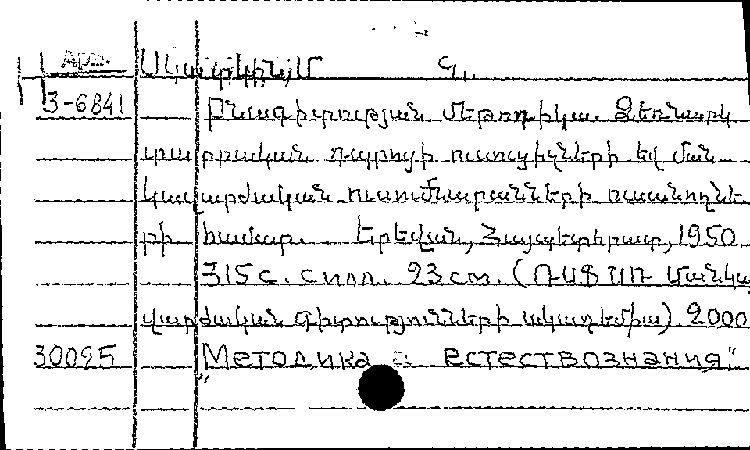 Арм.
З-6841
Բնագիտության մեթոդիկա. Ձեռնարկ
տարրական դպրոցի ուսուցիչների եվ ման
կավարժական ուսումնարանների ուսանողնե
րի համար. Երեվան, Հայպետհրատ, 1950
315 с. с илл. 23 см. (ՌՍՖՍՌ Մանկա
վարժական գիտությունների ակադեմիա) 2000
30095 "Методика естествознания"